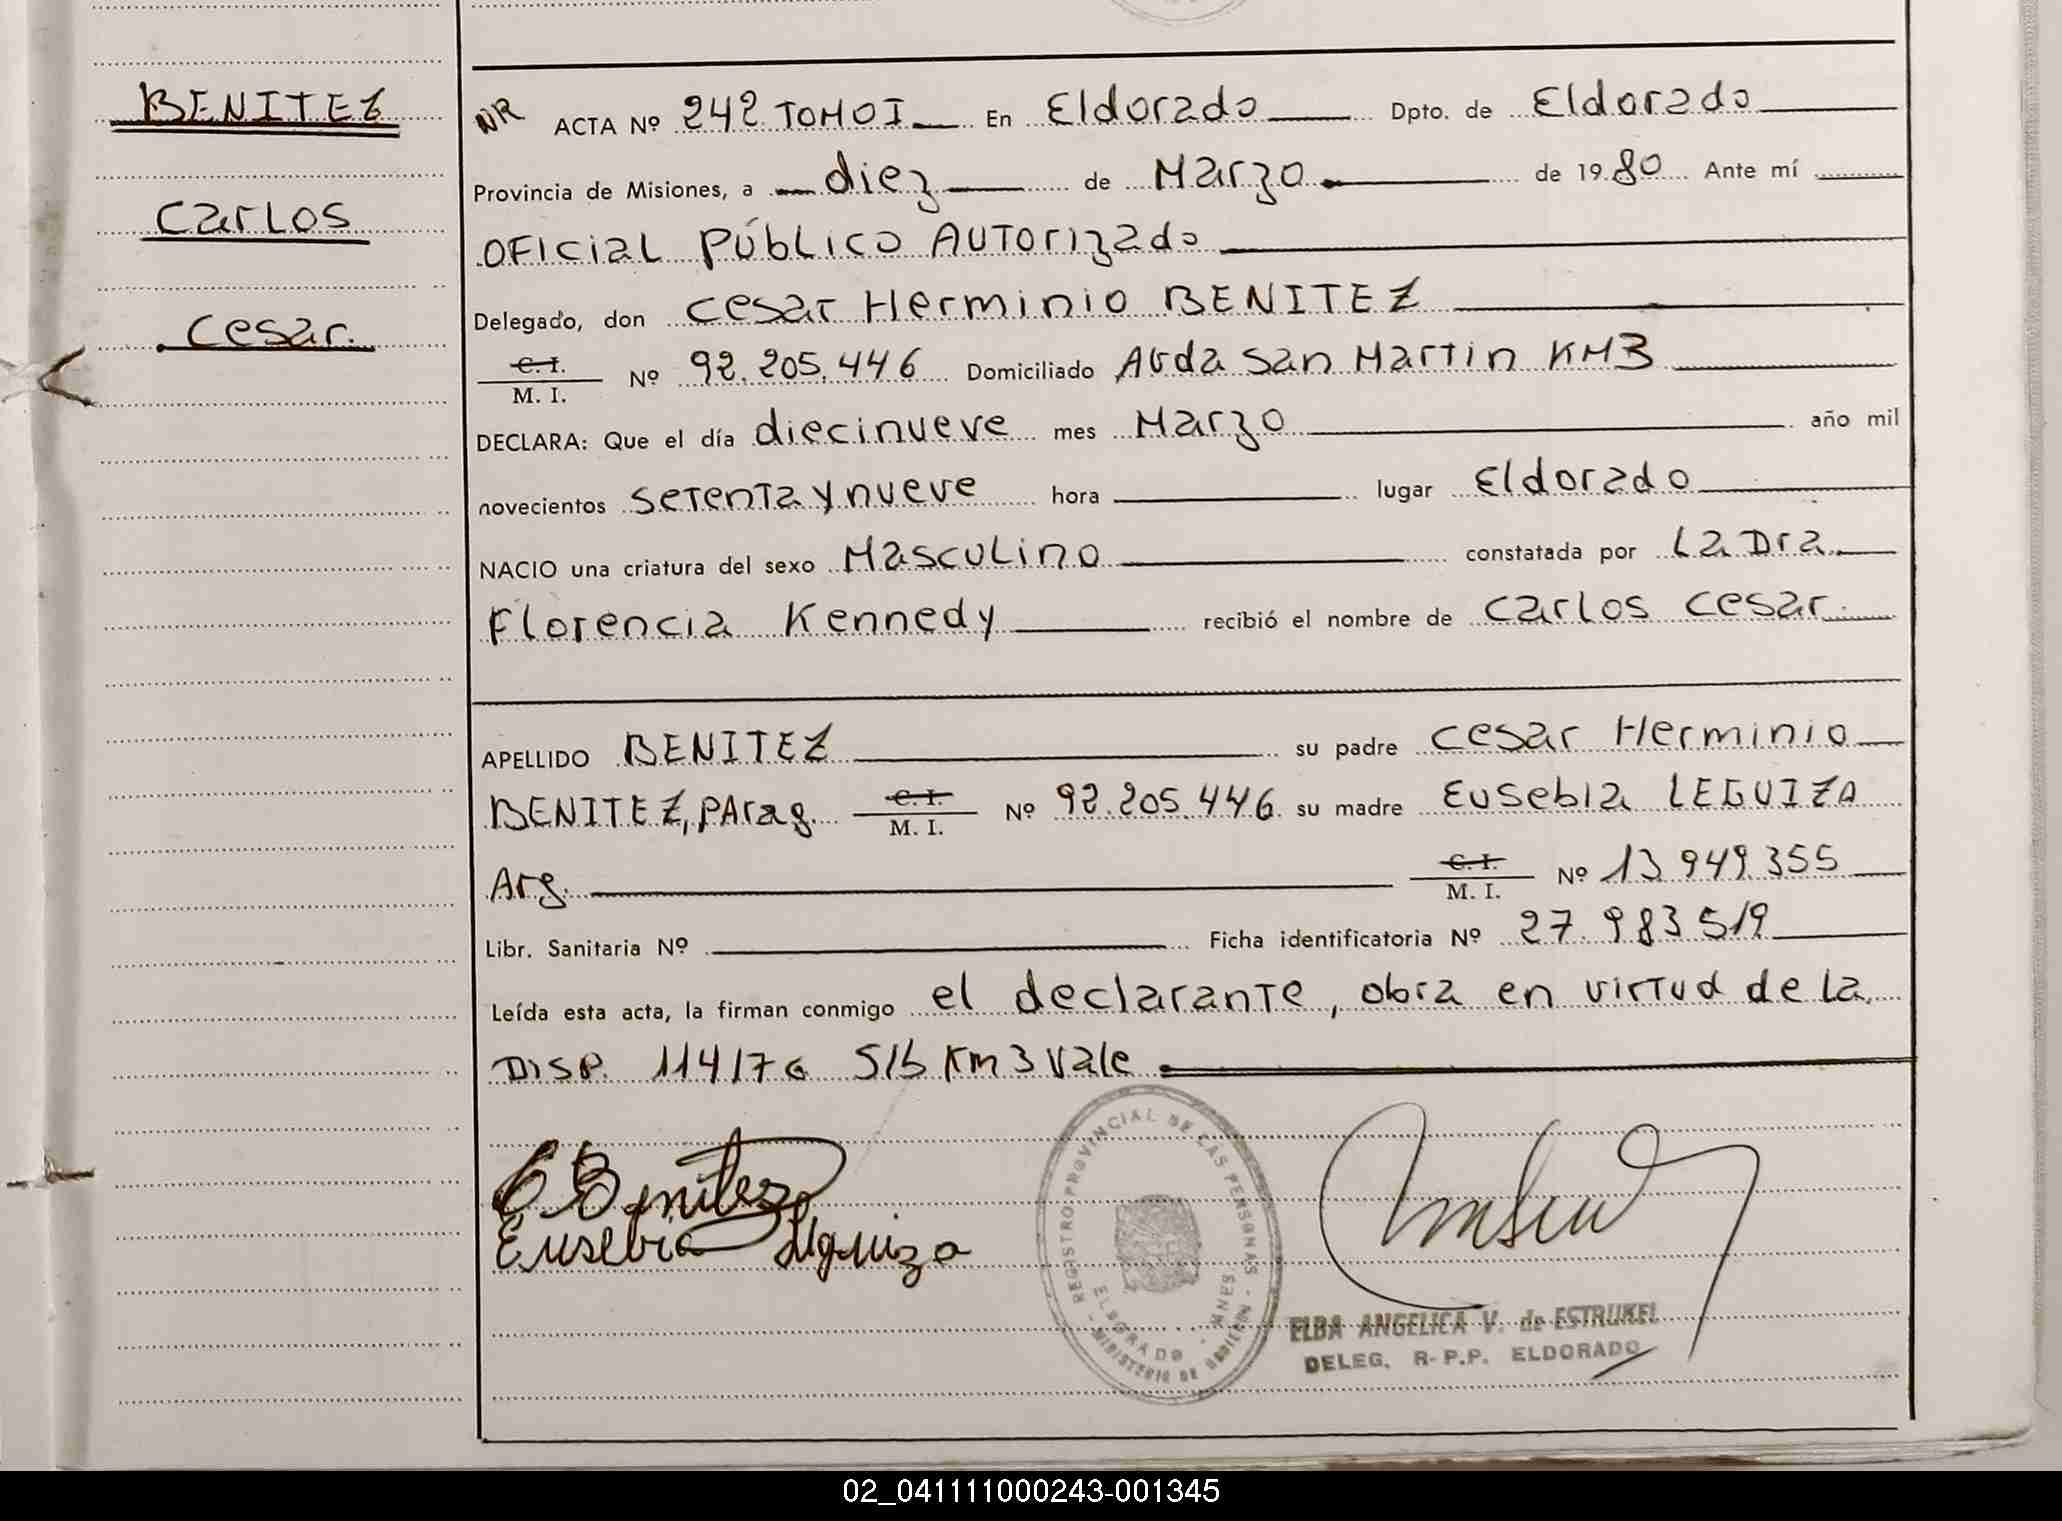 BENITEZ
Carlos
Cesar.
NR ACTA Nº 242 TOMO I En Eldorado Dpto. de Eldorado
Provincia de Misiones, a diez de Marzo de 1980 Ante mí
OFICIAL PÚBLICO AUTOrizado
Delegado, don Cesar Herminio BENITEZ
C.I. / M. I. Nº 92.205.446 Domiciliado Avda San Martin KM3
DECLARA: Que el día diecinueve mes Marzo año mil
novecientos setenta y nueve hora lugar Eldorado
NACIO una criatura del sexo Masculino constatada por La Dra
Florencia Kennedy recibió el nombre de Carlos Cesar.
APELLIDO BENITEZ su padre Cesar Herminio
BENITEZ, PArag. C.I. / M. I. Nº 92.205.446 su madre Eusebia LEGUIZA
Arg. C.I. / M. I. Nº 13 949.355
Libr. Sanitaria Nº Ficha identificatoria Nº 27.983 519
Leída esta acta, la firman conmigo el declarante, obra en virtud de la
Disp. 114/76 S/b Km 3 Vale
C Benitez
Eusebia Leguiza
REGISTRO PROVINCIAL DE LAS PERSONAS - MINISTERIO DE GOBIERNO
ELDORADO - MNES
ELBA ANGELICA V. de ESTRUKEL
DELEG. R-P.P. ELDORADO
02_041111000243-001345